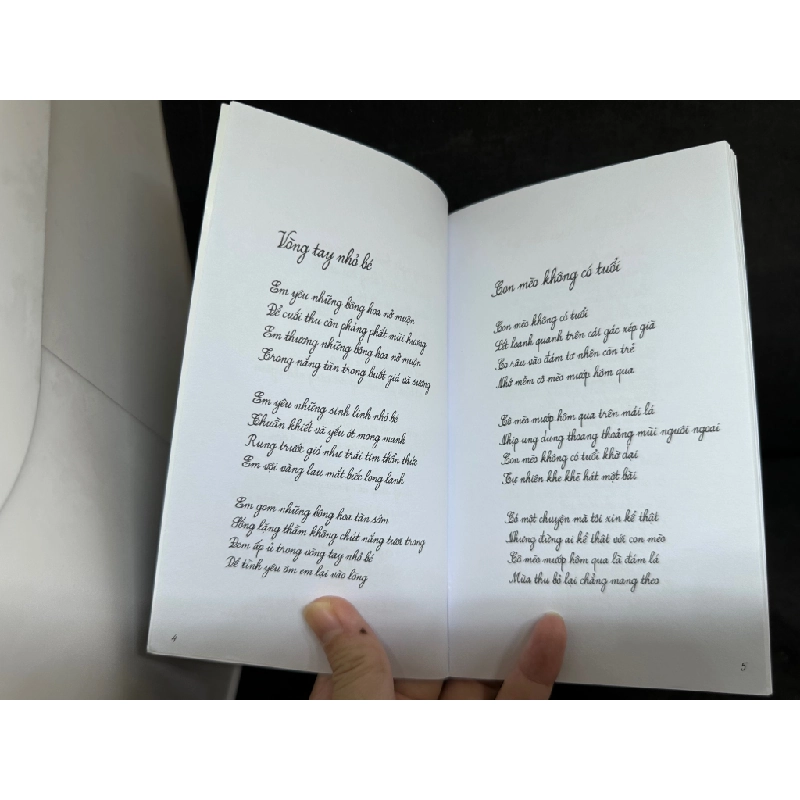 Vòng tay nhỏ bé
Em yêu những bông hoa nở muộn
Để cuối thu còn phảng phất mùi hương
Em thương những bông hoa nở muộn
Trong nắng tàn trong buốt giá và sương
Em yêu những sinh linh nhỏ bé
Thuần khiết và yếu ớt mong manh
Rung trước gió như trái tim thổn thức
Em vội vàng lau mắt biếc long lanh
Em gom những bông hoa tàn sớm
Sống lặng thầm không chút nắng tươi trong
Đem ấp ủ trong vòng tay nhỏ bé
Để tình yêu ôm em lại vào lòng
4
Con mèo không có tuổi
Con mèo không có tuổi
Cứ loanh quanh trên cái gác xép già
Cọ râu vào đám tơ nhện con trẻ
Nhớ mềm cô mèo mướp hôm qua
Cô mèo mướp hôm qua trên mái lá
Nhịp ung dung thoang thoảng mùi người ngoài
Con mèo không có tuổi khờ dại
Tự nhiên khe khẽ hát một bài
Có một chuyện mà tôi xin kể thật
Nhưng đừng ai kể thật với con mèo
Cô mèo mướp hôm qua là đám lá
Mùa thu bỏ lại chẳng mang theo
5